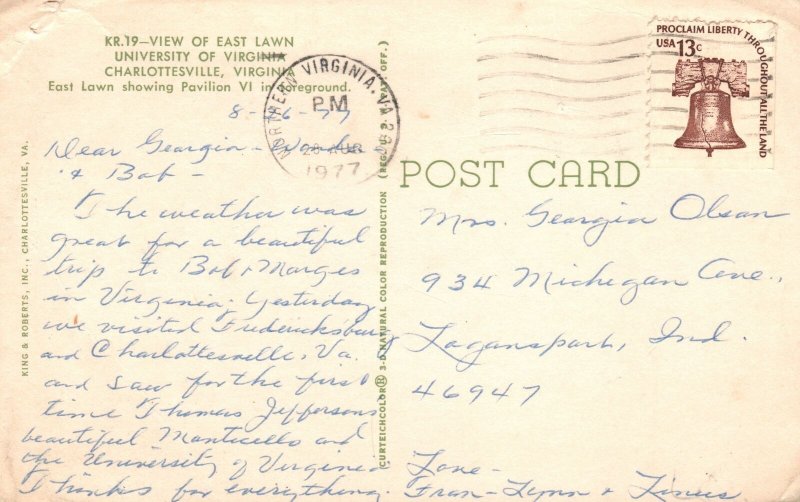 KR.19—VIEW OF EAST LAWN
UNIVERSITY OF VIRGINIA
CHARLOTTESVILLE, VIRGINIA
East Lawn showing Pavilion VI in foreground.
8-26-77
Dear Georgia - Wanda
& Bob -
The weather was
great for a beautiful
trip to Bob & Marges
in Virginia. Yesterday
we visited Fredericksburg
and Charlottesville, Va.
and saw for the first
time Thomas Jeffersons
beautiful Monticello and
the University of Virginia
Thanks for everything.
Love -
Fran - Lynn &
KING & ROBERTS, INC., CHARLOTTESVILLE, VA.
CURTEICHCOLOR® 3-D NATURAL COLOR REPRODUCTION (REG'D U.S. PAT. OFF.)
NORTHERN VIRGINIA, VA 220
PM
26 AUG
1977
PROCLAIM LIBERTY THROUGHOUT ALL THE LAND
USA 13c
POST CARD
Mrs. Georgia Olsan
934 Michigan Ave.,
Logansport, Ind.
46947